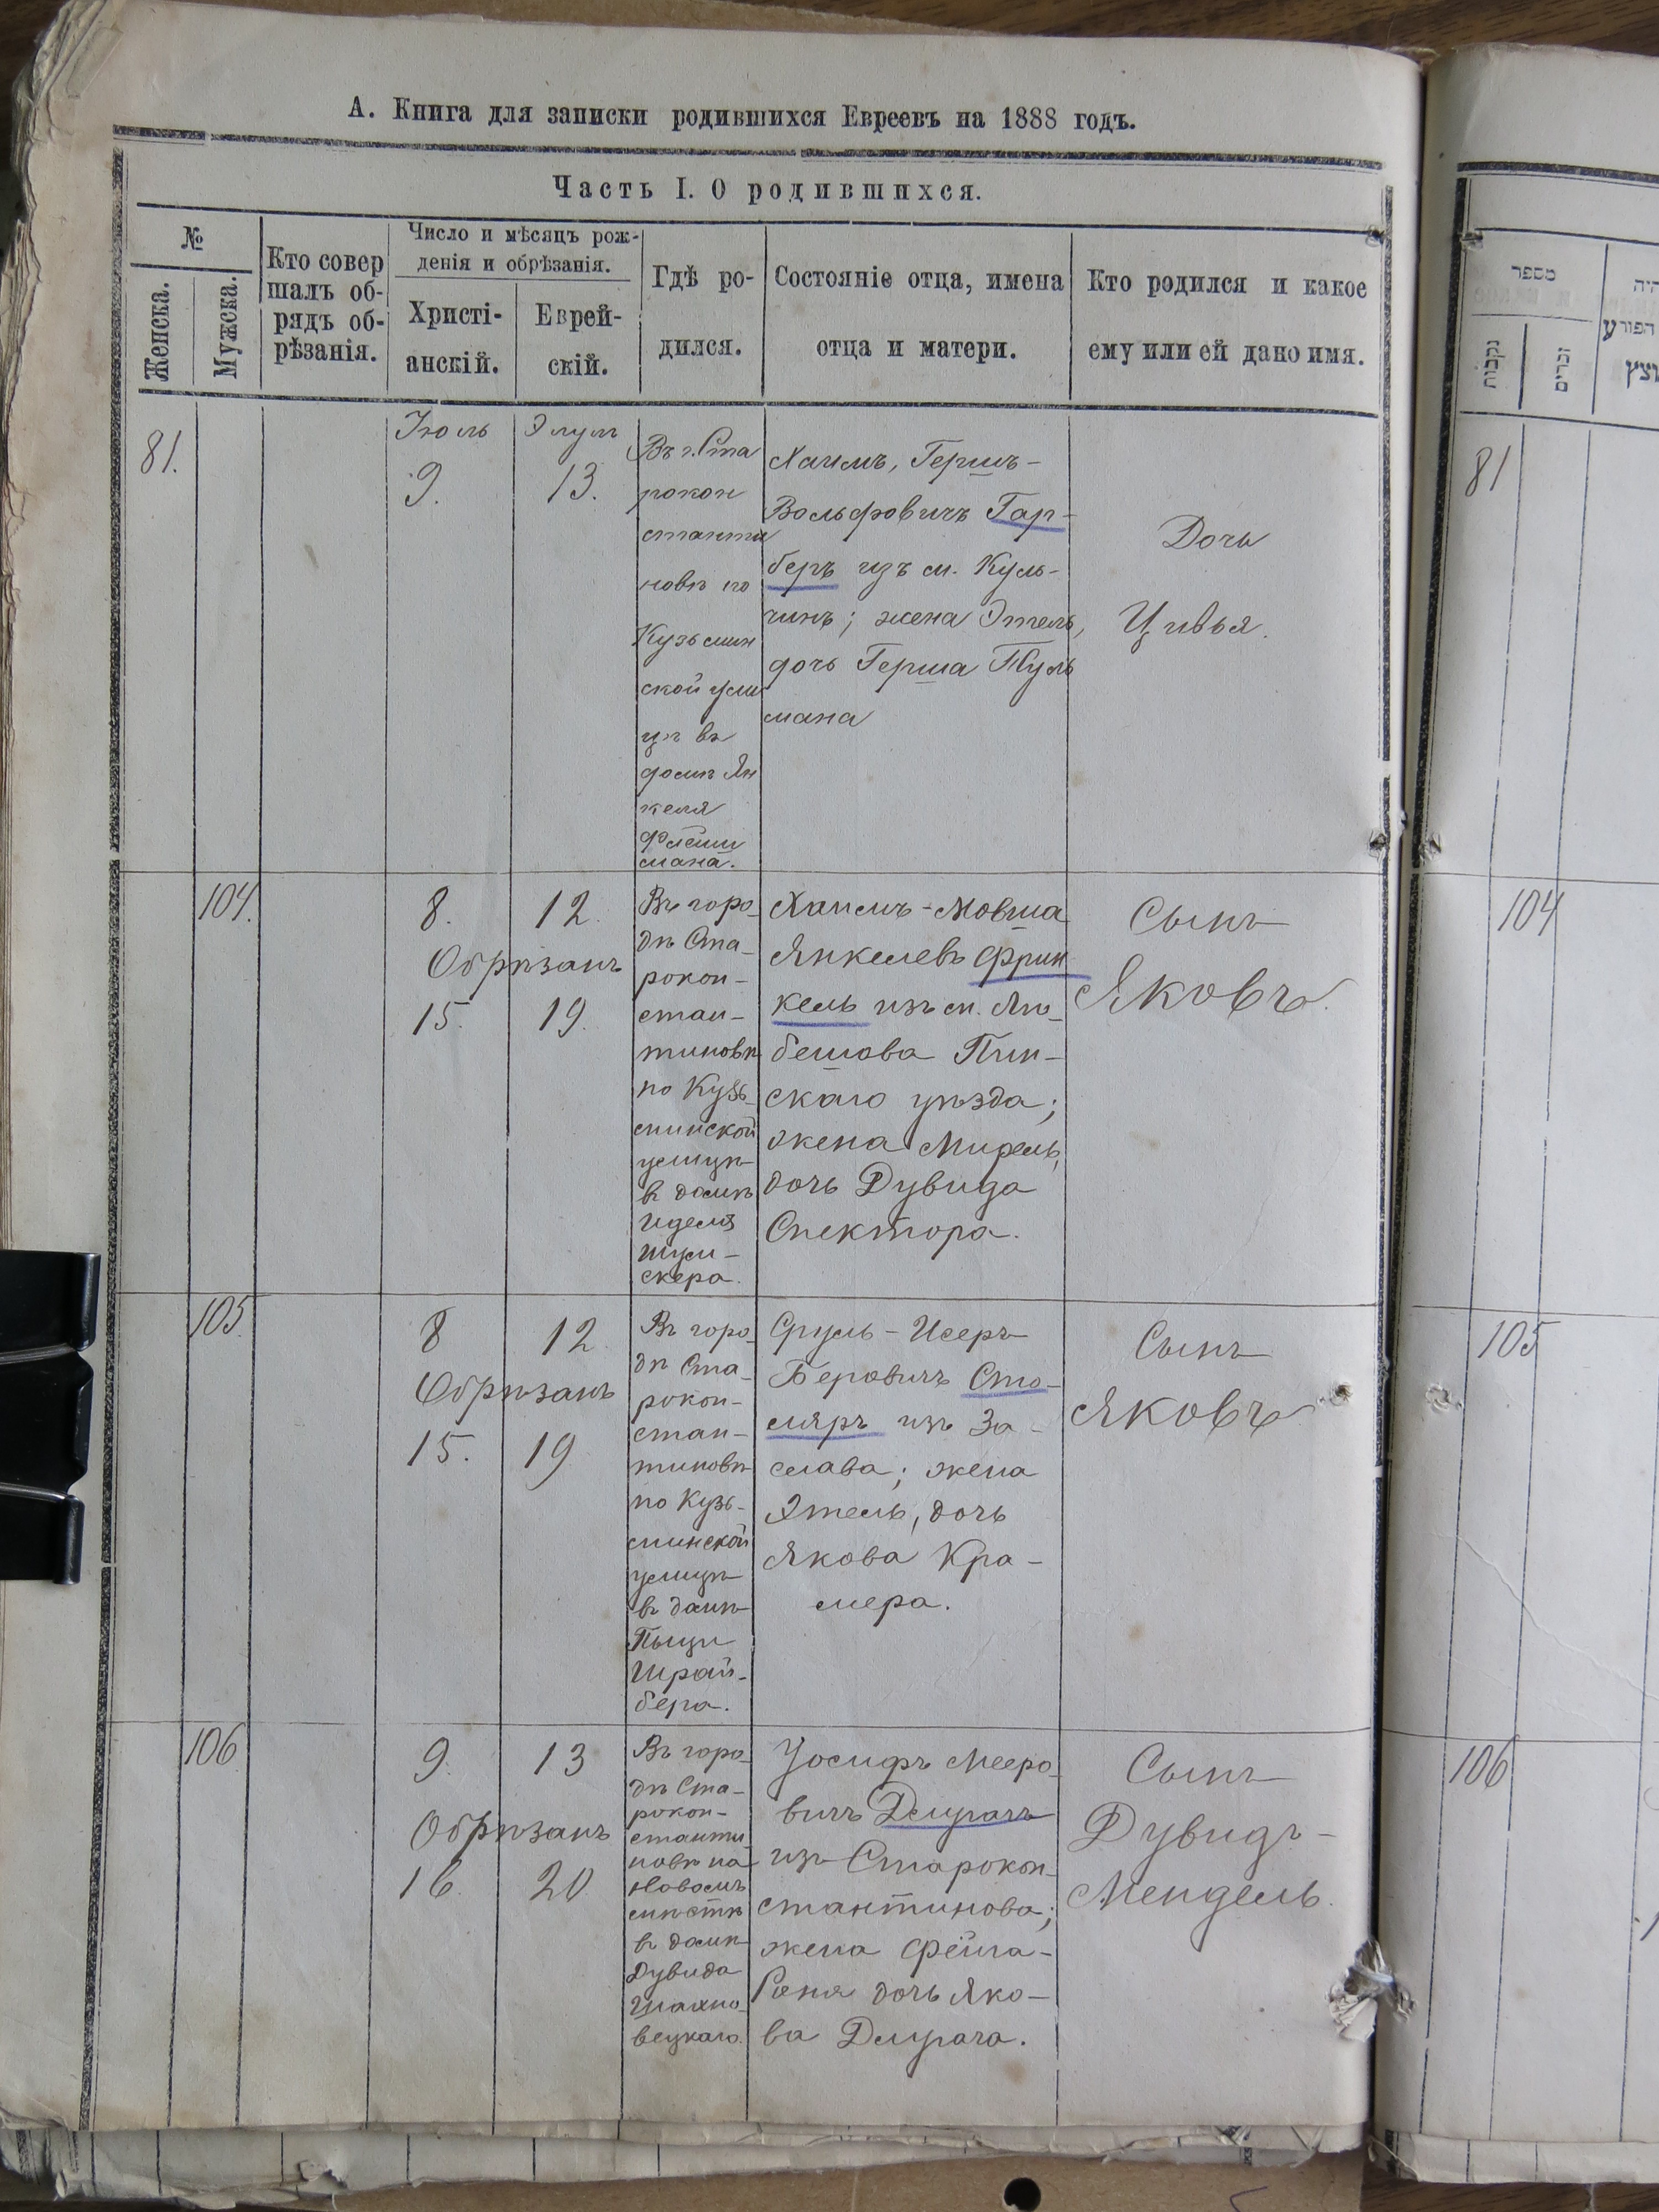 А. Книга для записки родившихся Евреевъ на 1888 годъ.
Часть I. О родившихся.
№
Женска.
Мужска.
Кто совер
шалъ об-
рядъ об-
рѣзанія.
Число и мѣсяцъ рож-
денія и обрѣзанія.
Христі-
анскій.
Еврей-
скій.
Гдѣ ро-
дился.
Состояніе отца, имена
отца и матери.
Кто родился и какое
ему или ей дано имя.
81.
Іюль
9.
Элулъ
13.
Въ г. Ста
рокон
станти
новѣ по
Кузьмин
ской ули
цѣ въ
домѣ Ян
келя
Флейш
мана.
Хаимъ, Гершъ-
Вольфовичъ Гар-
беръ изъ м. Куль-
чинъ; жена Этель,
дочь Герша
мана
Дочь
Цивья.
104.
8.
12.
Обрѣзанъ
15.
19.
Въ горо-
дѣ Ста-
рокон-
стан-
тиновѣ
по Кузь-
минской
улицѣ
въ домѣ
Иделя
Шум-
скера.
Хаимъ-Мовша
Янкелевъ Фрин
кель изъ м. Лю-
бешова Пин-
скаго уѣзда;
жена Мирель,
дочь Дувида
Спектора.
Сынъ
Яковъ.
105.
8
12
Обрѣзанъ
15.
19
Въ горо-
дѣ Ста-
рокон-
стан-
тиновѣ
по Кузь-
минской
улицѣ
въ домѣ
Шрай-
бера.
Сруль-Исеръ
Беровичъ Сто-
ляръ изъ За-
слава; жена
Этель, дочь
Якова Кра-
мера.
Сынъ
Яковъ
106
9.
13
Обрѣзанъ
16.
20
Въ горо-
дѣ Ста-
рокон-
станти-
новѣ на
Новомъ
мѣстѣ
въ домѣ
Дувида
Шахно-
вецкаго.
Іосифъ Мееро-
вичъ Длугачъ
изъ Старокон-
стантинова;
жена Фейга-
Реня дочь Яко-
ва Длугача.
Сынъ
Дувидъ-
Мендель.
מספר
נקבות
זכרים
היה
הפורע
81
104
105
106